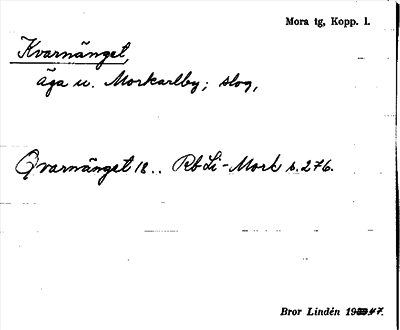 Mora tg, Kopp. l.
Kvarnänget,
äga u. Morkarlby; slog,
Qvarnänget 18.. Rb Li-Mork s. 276.
Bror Lindén 1947.